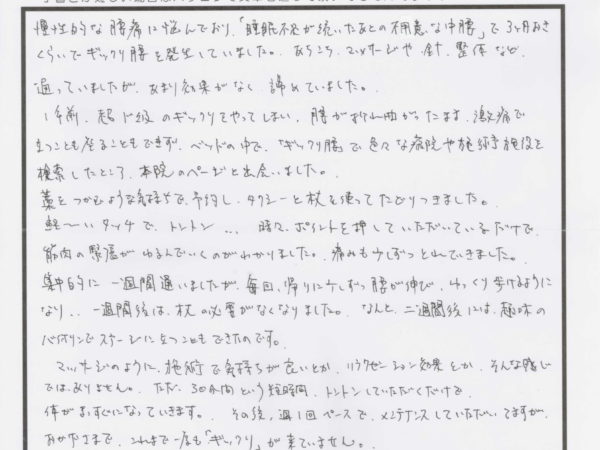 慢性的な腰痛に悩んでおり、「睡眠不足が続いたあとの不用意な中腰」で3ヶ月おき
くらいでギックリ腰を発生していました。あちこち、マッサージや、針、整体など、
通っていましたが、あまり効果がなく、諦めていました。
1年前、超ド級のギックリをやってしまい、腰が折れ曲がったまま、激痛で
立つことも座ることもできず、ベッドの中で、「ギックリ腰」で色々な病院や施術施設を
検索したところ、本院のページと出会いました。
藁をつかむような気持ちで、予約し、タクシーと杖を使ってたどりつきました。
軽〜いタッチで、トントン... 時々、ポイントを押していただいているだけで、
筋肉の緊張がゆるんでいくのがわかりました。痛みも少しずつとれていきました。
集中的に一週間通いましたが、毎回、帰りに少しずつ腰が伸び、ゆっくり歩けるように
なり、一週間後は、杖の必要がなくなりました。なんと、二週間後には、趣味の
バイオリンでステージに立つこともできたのです。
マッサージのように、施術で気持ちが良いとか、リラクゼーション効果とか、そんな感じ
ではありません。ただ、30分間という短時間、トントンしていただくだけで、
体がまっすぐになっていきます。その後、週1回ペースで、メンテナンスしていただいてますが、
おかげさまで、これまで一度も「ギックリ」が来ていません。